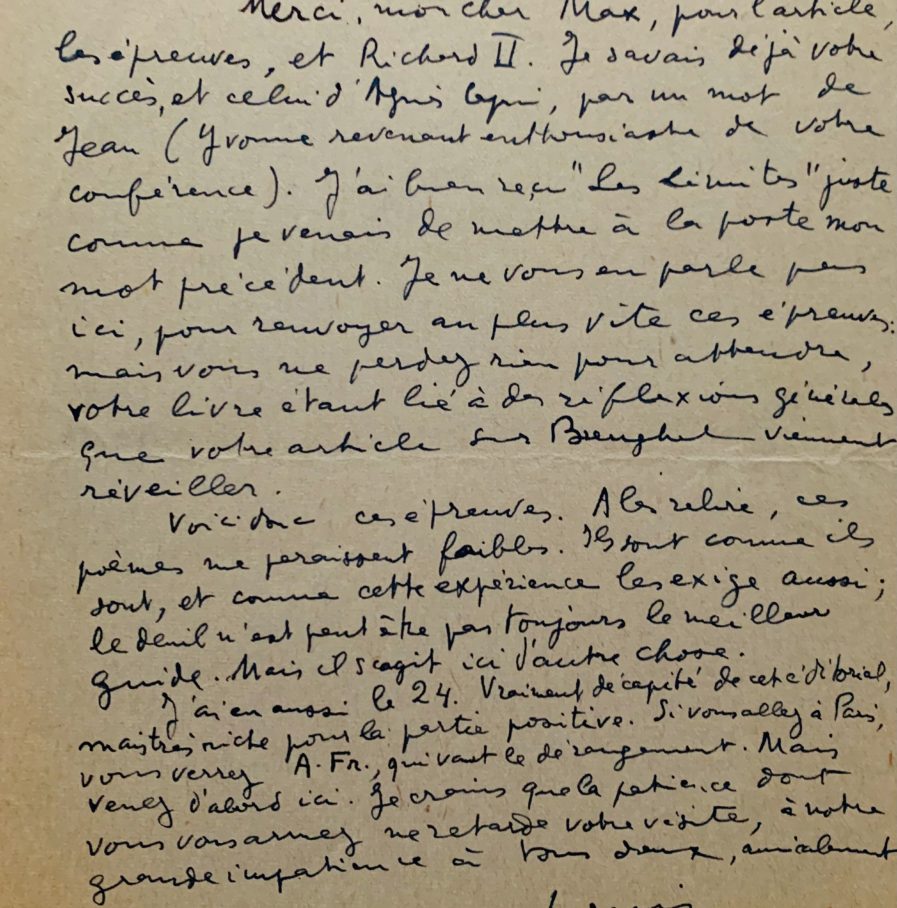 Merci, mon cher Max, pour l'article,
les épreuves, et Richard II. Je savais déjà votre
succès, et celui d'Agnès Capri, par un mot de
Jean (Yvonne revenant enthousiaste de votre
conférence). J'ai bien reçu "Les Limites" juste
comme je venais de mettre à la poste mon
mot précédent. Je ne vous en parle pas
ici, pour renvoyer au plus vite ces épreuves:
mais vous ne perdez rien pour attendre,
votre livre étant lié à des réflexions générales
que votre article sur Breughel viennent
réveiller.
Voici donc ces épreuves. A les relire, ces
poèmes me paraissent faibles. Ils sont comme ils
sont, et comme cette expérience les exige aussi;
le deuil n'est peut être pas toujours le meilleur
guide. Mais il s'agit ici d'autre chose.
J'ai eu aussi le 24. Vraiment décapité de cet éditorial,
mais très riche pour la partie positive. Si vous allez à Paris,
vous verrez A. Fr., qui vaut le dérangement. Mais
venez d'abord ici. Je crains que la patience dont
vous vous armez ne retarde votre visite, à notre
grande impatience à tous deux, amicalement